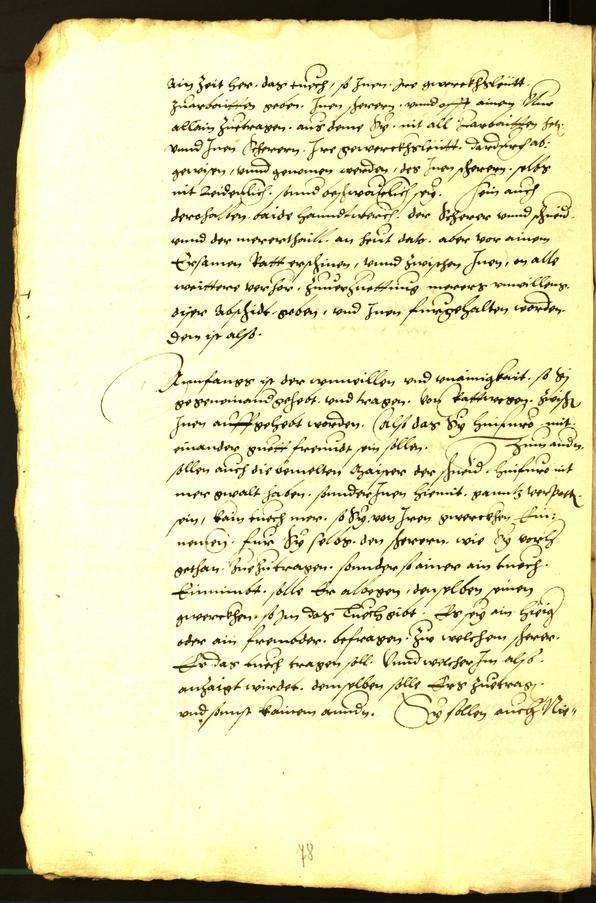 ain Zeit her. das tuech, so Inen. Ire gwerckhsleütt.
Zuarbaitten geben. Inen scherern. vnnd offt ainem Nur
allain Zuetragen. aus deme Sy. mit all Zuarbaitten hetten
vnnd Inen Scherern. Ire gewerckhsleütt. dardurch ab:
gewisen, vnnd genomen werden, des Inen scherern. selbs
mit Leidenlich. sonnd beschwärlich sey. Sein auch
derohalben. baide Hanndtwerch. der Scherer vnnd Schneid.
vnnd der merertheill. an heut dato. aber vor ainem
Ersamen Ratt erschinen, vnnd Zwischen Inen, en alle
weittere verhör. Zuuerhuettung merers vnwillens.
diser Abschidt. geben, vnd Inen furgehalten worden.
dem ist also.
Annfangs ist der vnwillen vnd vnainigkait. so Sy
gegeneinand gehebt. vnd tragen. von Rattwegen. Zwisch
Inen auffgehebt worden. also das Sy hinfuro mit
einander guett freundt sein sollen. Zum andn.
sollen auch die bemelten Maister der Schneid. hinfuro nit
mer gwalt haben. sonder Inen hiemit. ganntz verspert
sein, kain tuech mer. so Sy von Iren gwerckhen Ein:
nemen. fur Sy selbs. den scherern. wie Sy vorhe
gethan. Zuezutragen. sonder so ainer ain tuech.
Einnimbt. solle Er alwegen, denselben seinen
gwerckhen. so Im das Tuech gibt. Er sey ain hieig
oder ain frembder. befragen. Zu welchem scherer.
Er das tuech tragen soll. Vnnd welcher Im also.
anzaigt wirdet. demselben solle Ers Zuetragn.
vnd sonst kainem anndn. Sy sollen auch Nie=
78